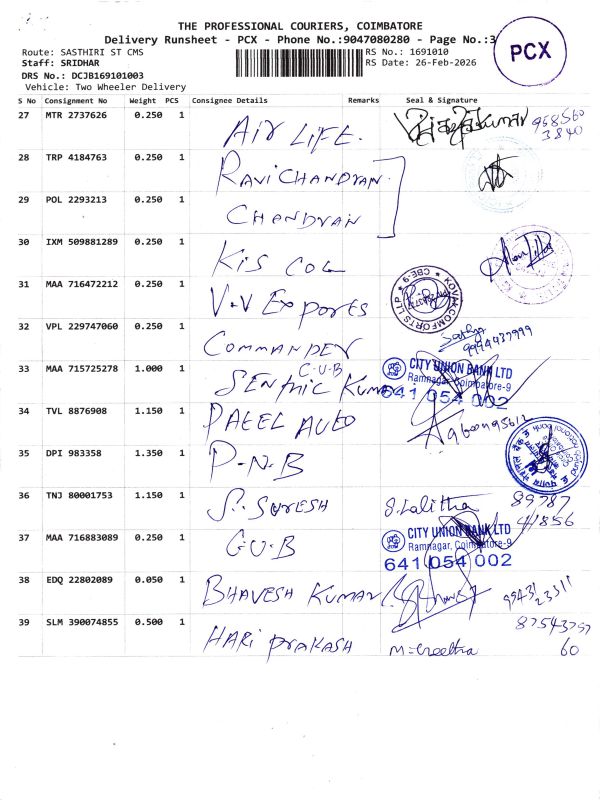 THE PROFESSIONAL COURIERS, COIMBATORE
Delivery Runsheet - PCX - Phone No.:9047080280 - Page No.:3
PCX
Route: SASTHIRI ST CMS
RS No.: 1691010
Staff: SRIDHAR
RS Date: 26-Feb-2026
DRS No.: DCJB169101003
Vehicle: Two Wheeler Delivery
S No Consignment No Weight PCS Consignee Details Remarks Seal & Signature
27 MTR 2737626 0.250 1 AIR LIFE. 958560
3840
28 TRP 4184763 0.250 1 RAVICHANDRAN
29 POL 2293213 0.250 1 CHANDRAN
30 IXM 509881289 0.250 1 KIS COL
31 MAA 716472212 0.250 1 V.V EXPORTS KOVAI COMFORTS LLP CBE-9
32 VPL 229747060 0.250 1 COMMANDER Sathya
9994437999
33 MAA 715725278 1.000 1 C.U.B
SENTHIL KUMAR
CITY UNION BANK LTD
Ramnagar, Coimbatore-9
641 054 002
34 TVL 8876908 1.150 1 PATEL AUTO
35 DPI 983358 1.350 1 P.N.B
36 TNJ 80001753 1.150 1 S. SURESH S. Lalitha 89787
41856
37 MAA 716883089 0.250 1 C.U.B
CITY UNION BANK LTD
Ramnagar, Coimbatore-9
641 054 002
38 EDQ 22802089 0.050 1 BHAVESH KUMAR
39 SLM 390074855 0.500 1 HARI PRAKASH 87543757
60